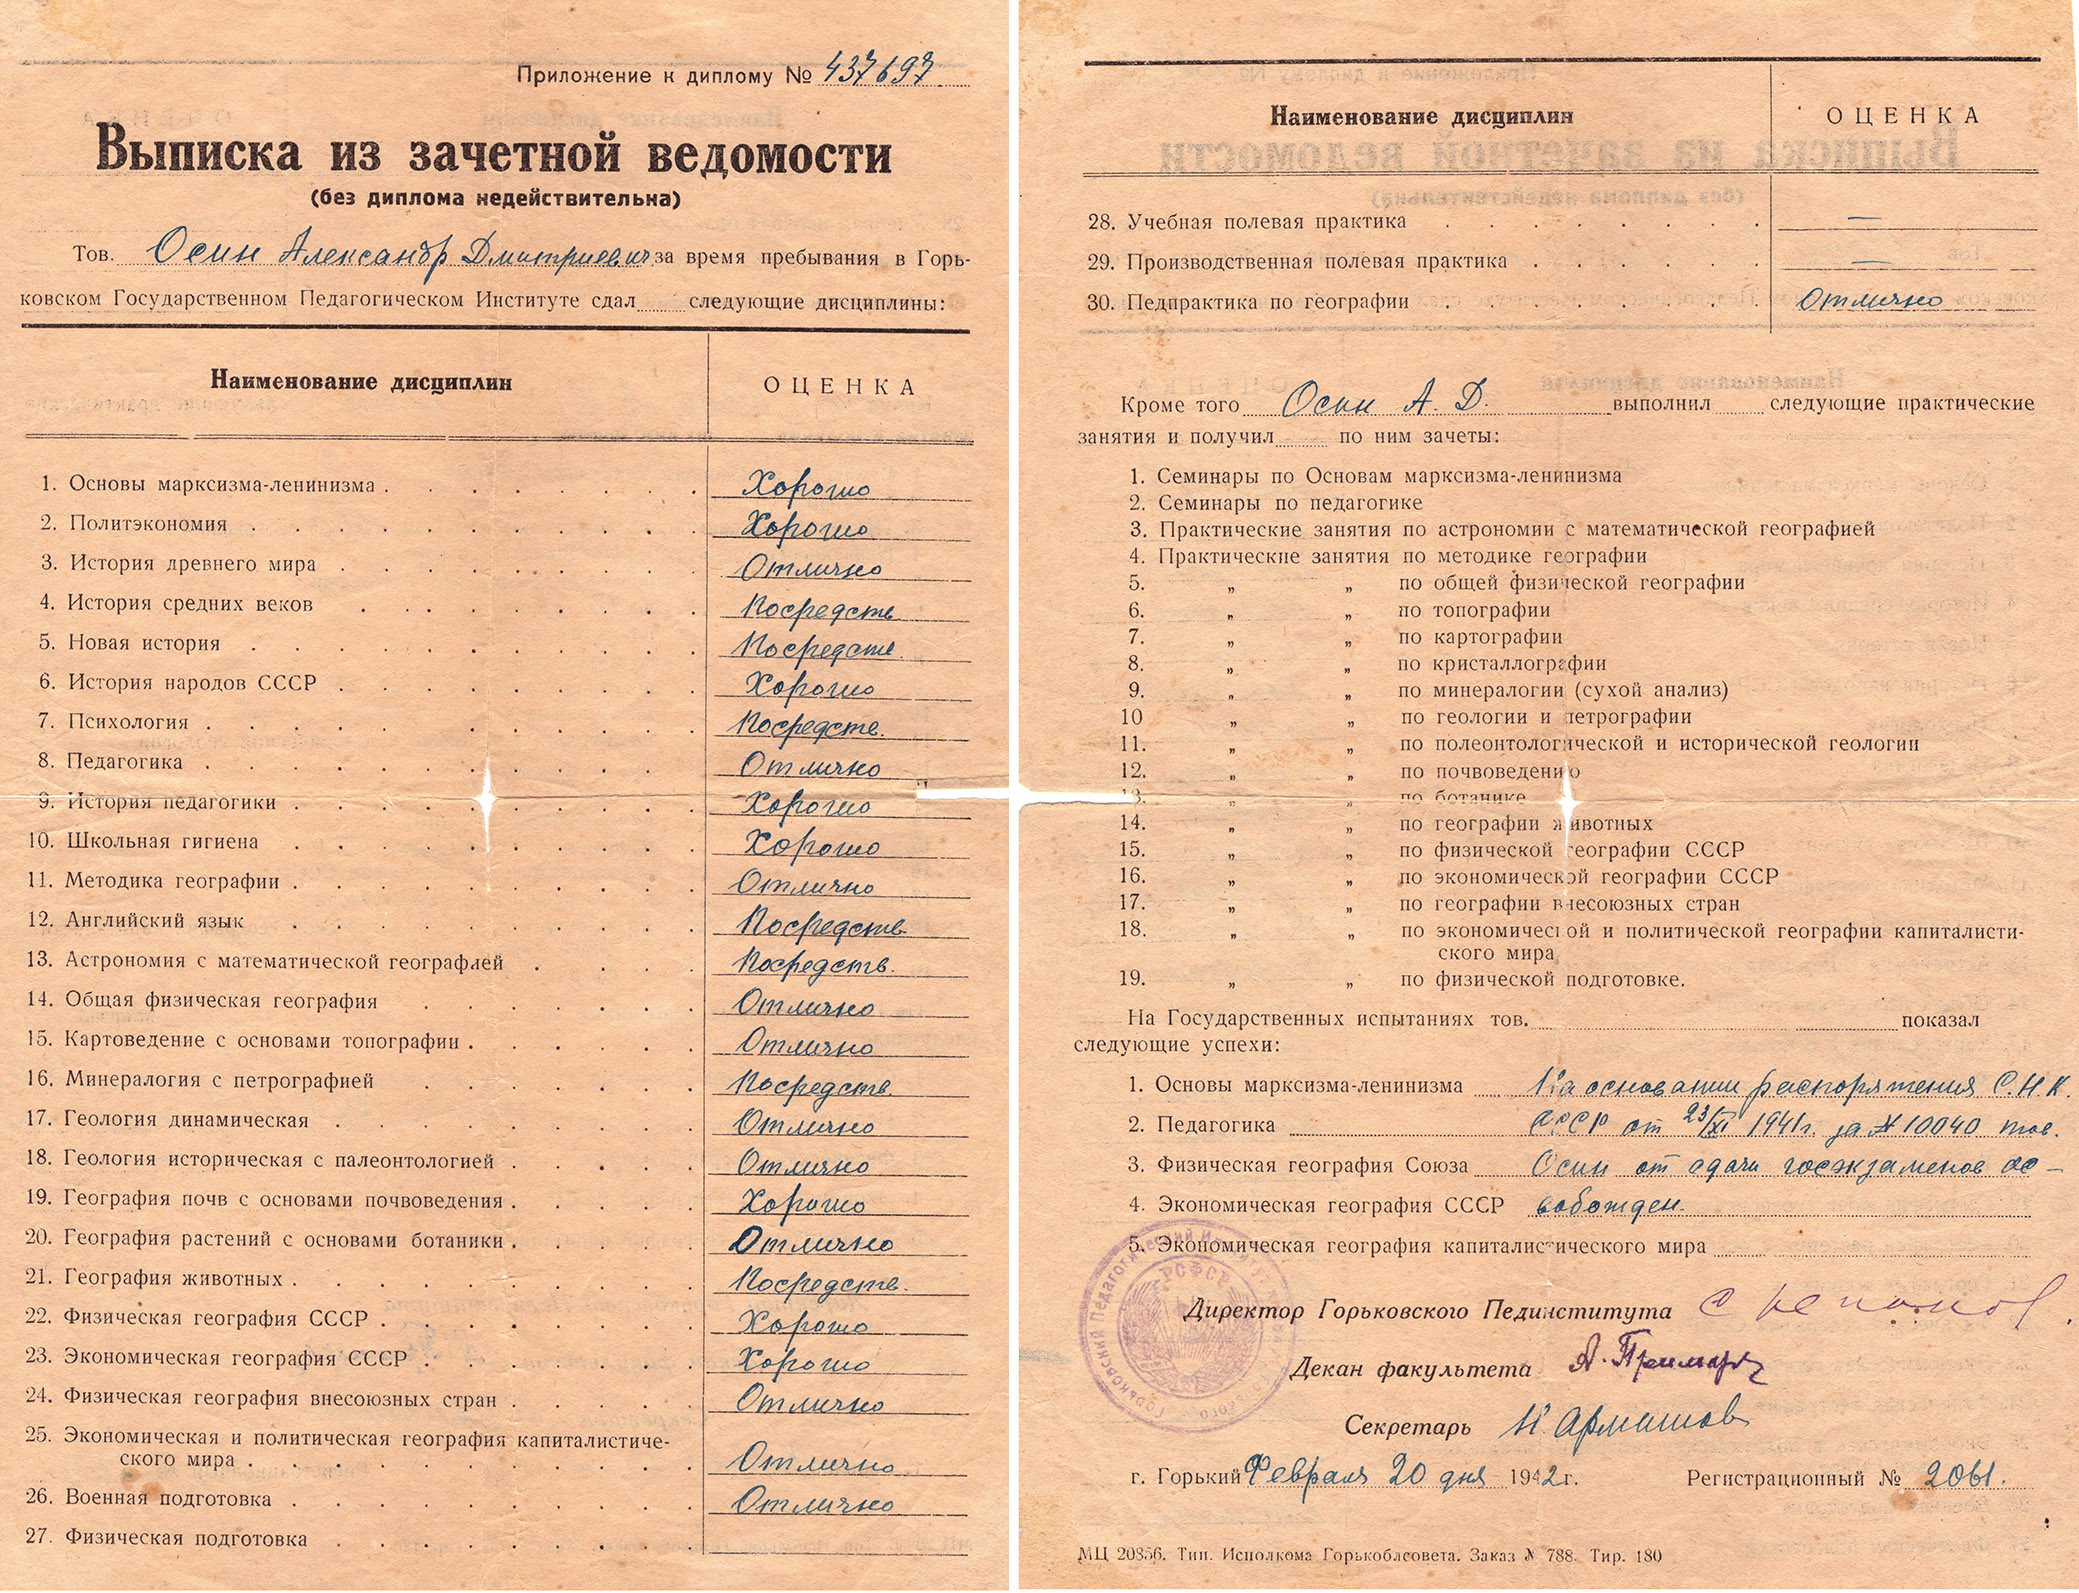 Приложение к диплому № 437697
Выписка из зачетной ведомости
(без диплома недействительна)
Тов. Осин Александр Дмитриевич за время пребывания в Горь-
ковском Государственном Педагогическом Институте сдал следующие дисциплины:
Наименование дисциплин ОЦЕНКА
1. Основы марксизма-ленинизма Хорошо
2. Политэкономия Хорошо
3. История древнего мира Отлично
4. История средних веков Посредств
5. Новая история Посредств.
6. История народов СССР Хорошо
7. Психология Посредств.
8. Педагогика Отлично
9. История педагогики Хорошо
10. Школьная гигиена Хорошо
11. Методика географии Отлично
12. Английский язык Посредств.
13. Астрономия с математической географией Посредств.
14. Общая физическая география Отлично
15. Картоведение с основами топографии Отлично
16. Минералогия с петрографией Посредств.
17. Геология динамическая Отлично
18. Геология историческая с палеонтологией Отлично
19. География почв с основами почвоведения Хорошо
20. География растений с основами ботаники Отлично
21. География животных Посредств.
22. Физическая география СССР Хорошо
23. Экономическая география СССР Хорошо
24. Физическая география внесоюзных стран Отлично
25. Экономическая и политическая география капиталистиче-
ского мира Отлично
26. Военная подготовка Отлично
27. Физическая подготовка
Наименование дисциплин ОЦЕНКА
28. Учебная полевая практика —
29. Производственная полевая практика —
30. Педпрактика по географии Отлично
Кроме того Осин А. Д. выполнил следующие практические
занятия и получил по ним зачеты:
1. Семинары по Основам марксизма-ленинизма
2. Семинары по педагогике
3. Практические занятия по астрономии с математической географией
4. Практические занятия по методике географии
5. „ „ по общей физической географии
6. „ „ по топографии
7. „ „ по картографии
8. „ „ по кристаллографии
9. „ „ по минералогии (сухой анализ)
10 „ „ по геологии и петрографии
11. „ „ по полеонтологической и исторической геологии
12. „ „ по почвоведению
13. „ „ по ботанике
14. „ „ по географии животных
15. „ „ по физической географии СССР
16. „ „ по экономической географии СССР
17. „ „ по географии внесоюзных стран
18. „ „ по экономической и политической географии капиталисти-
ческого мира
19. „ „ по физической подготовке.
На Государственных испытаниях тов. показал
следующие успехи:
1. Основы марксизма-ленинизма На основании распоряжения С.Н.К.
2. Педагогика СССР от 23/XI 1941г. за № 10040 тов.
3. Физическая география Союза Осин от сдачи госэкзаменов ос-
4. Экономическая география СССР вобожден.
5. Экономическая география капиталистического мира
Директор Горьковского Пединститута
Декан факультета
Секретарь
г. Горький Февраля 20 дня 1942г. Регистрационный № 2061.
МЦ 20856. Тип. Исполкома Горькоблсовета. Заказ № 788. Тир. 180